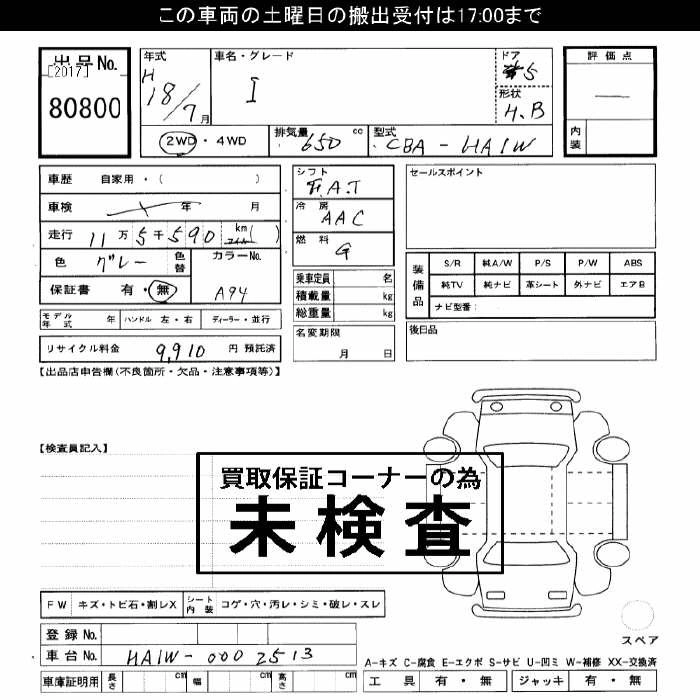 この車両の土曜日の搬出受付は17:00まで
出品No.
[2017]
80800
年式
H
18/7月
車名・グレード
I
ドア
5
形状
H.B
評価点
―
内装
2WD・4WD
排気量 650 cc
型式 CBA-HA1W
車歴 自家用・( )
車検 年 月
走行 11万5千590 km マイル( )
色 グレー 色替
カラーNo. A94
保証書 有・無
シフト F.A.T
冷房 AAC
燃料 G
セールスポイント
装備品
S/R 純A/W P/S P/W ABS
純TV 純ナビ 革シート 外ナビ エアB
ナビ型番:
乗車定員 名
積載量 kg
総重量 kg
モデル年式 年 ハンドル 左・右 ディーラー・並行
名変期限 月 日
後日品
リサイクル料金 9,910 円 預託済
【出品店申告欄(不良箇所・欠品・注意事項等)】
【検査員記入】
買取保証コーナーの為
未検査
FW キズ・トビ石・割レX シート内装 コゲ・穴・汚レ・シミ・破レ・スレ
スペア
登録No.
車台No. HA1W-0002513
A-キズ C-腐食 E-エクボ S-サビ U-凹ミ W-補修 XX-交換済
車庫証明用 長さ cm 幅 cm 高さ cm
工具 有・無 ジャッキ 有・無